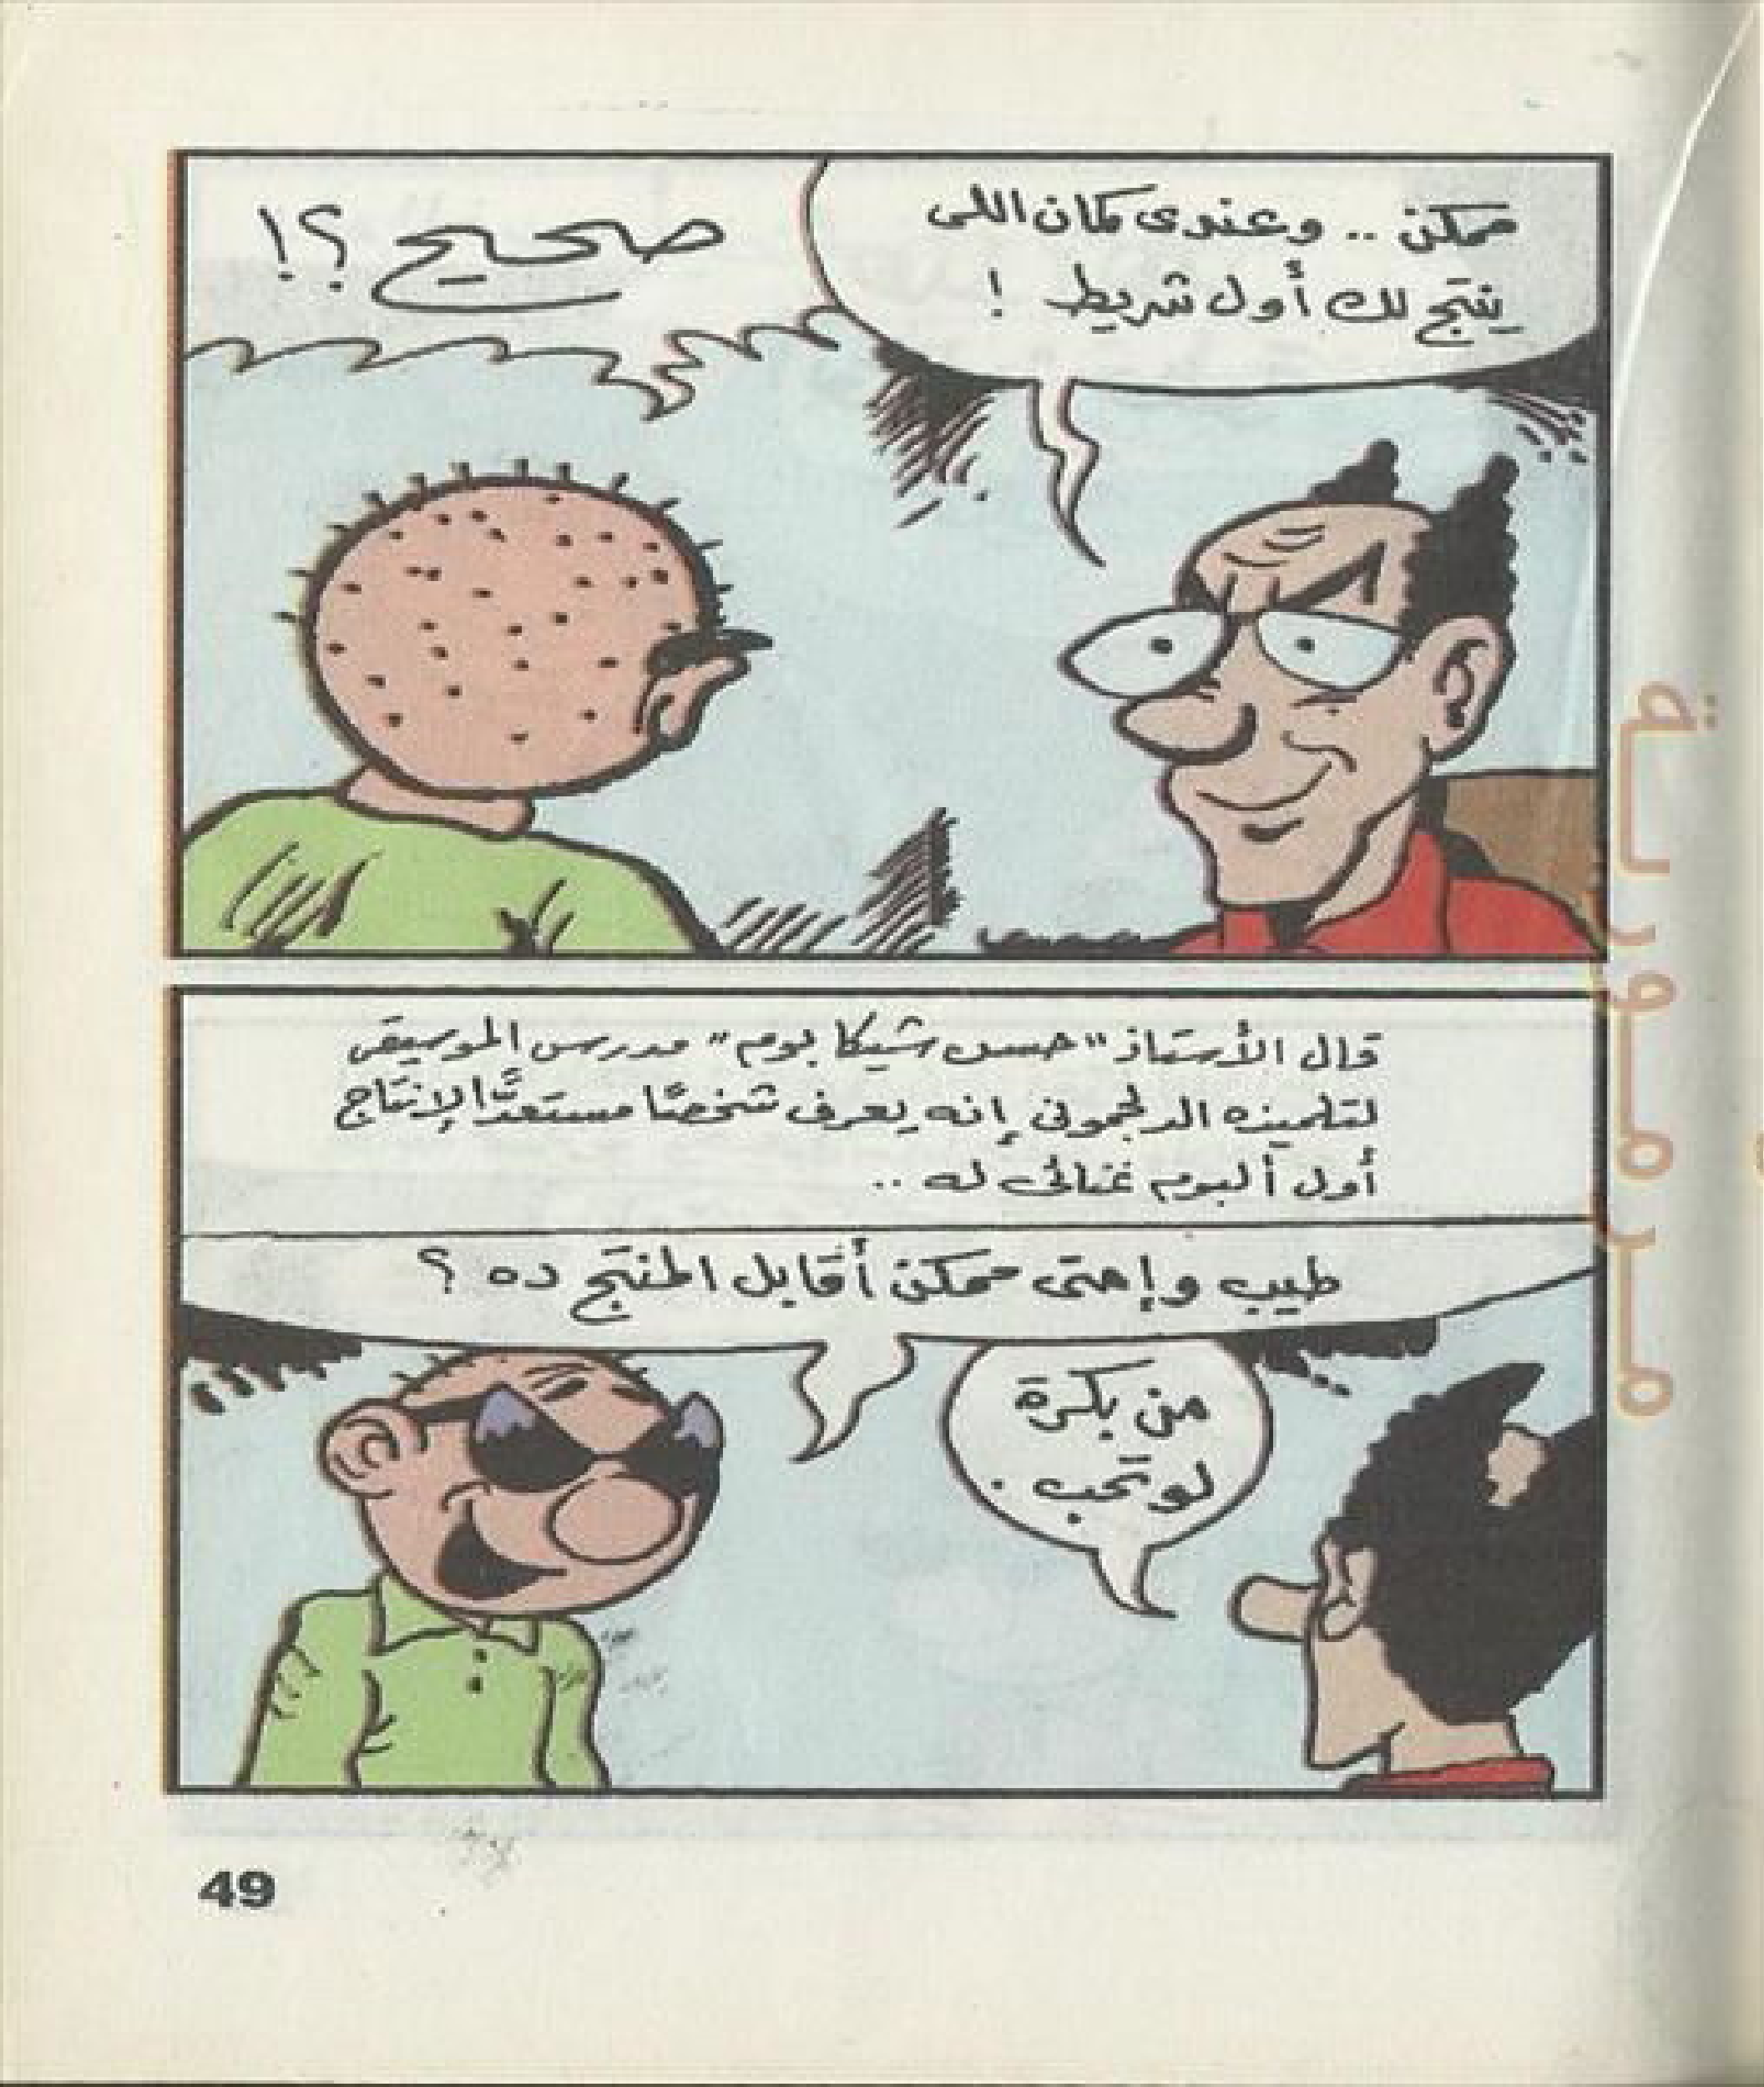 ممكن .. وعندى كمان اللى
ينتج لك أول شريط !
صحيح ؟!
قال الأستاذ "حسن شيكا بوم" مدرس الموسيقى
لتلميذه الدلجمونى إنه يعرف شخصًا مستعدًّا لإنتاج
أول ألبوم غنائى له ..
طيب وإمتى ممكن أقابل المنتج ده ؟
من بكرة
لو تحب .
49